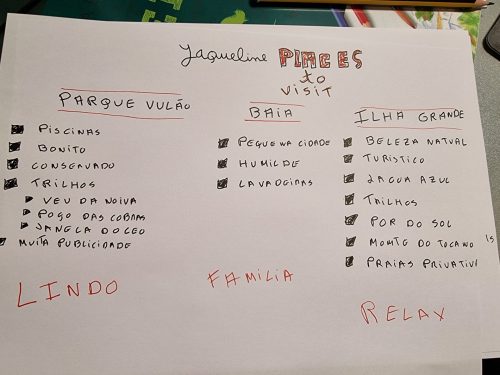 Jaqueline PLACES
to
VISIT
PARQUE VULÃO
PISCINAS
BONITO
CONSERVADO
TRILHOS
VEU DA NOIVA
POÇO DAS COBRAS
JANELA DO CEO
MUITA PUBLICIDADE
LINDO
BAIA
PEQUENA CIDADE
HUMILDE
LAVADEIRAS
FAMILIA
ILHA GRANDE
BELEZA NATUAL
TURISTICO
LAGOA AZUL
TRILHOS
POR DO SOL
MONTE DO TUCANO
PRAIAS PRIVATIVIS
RELAX